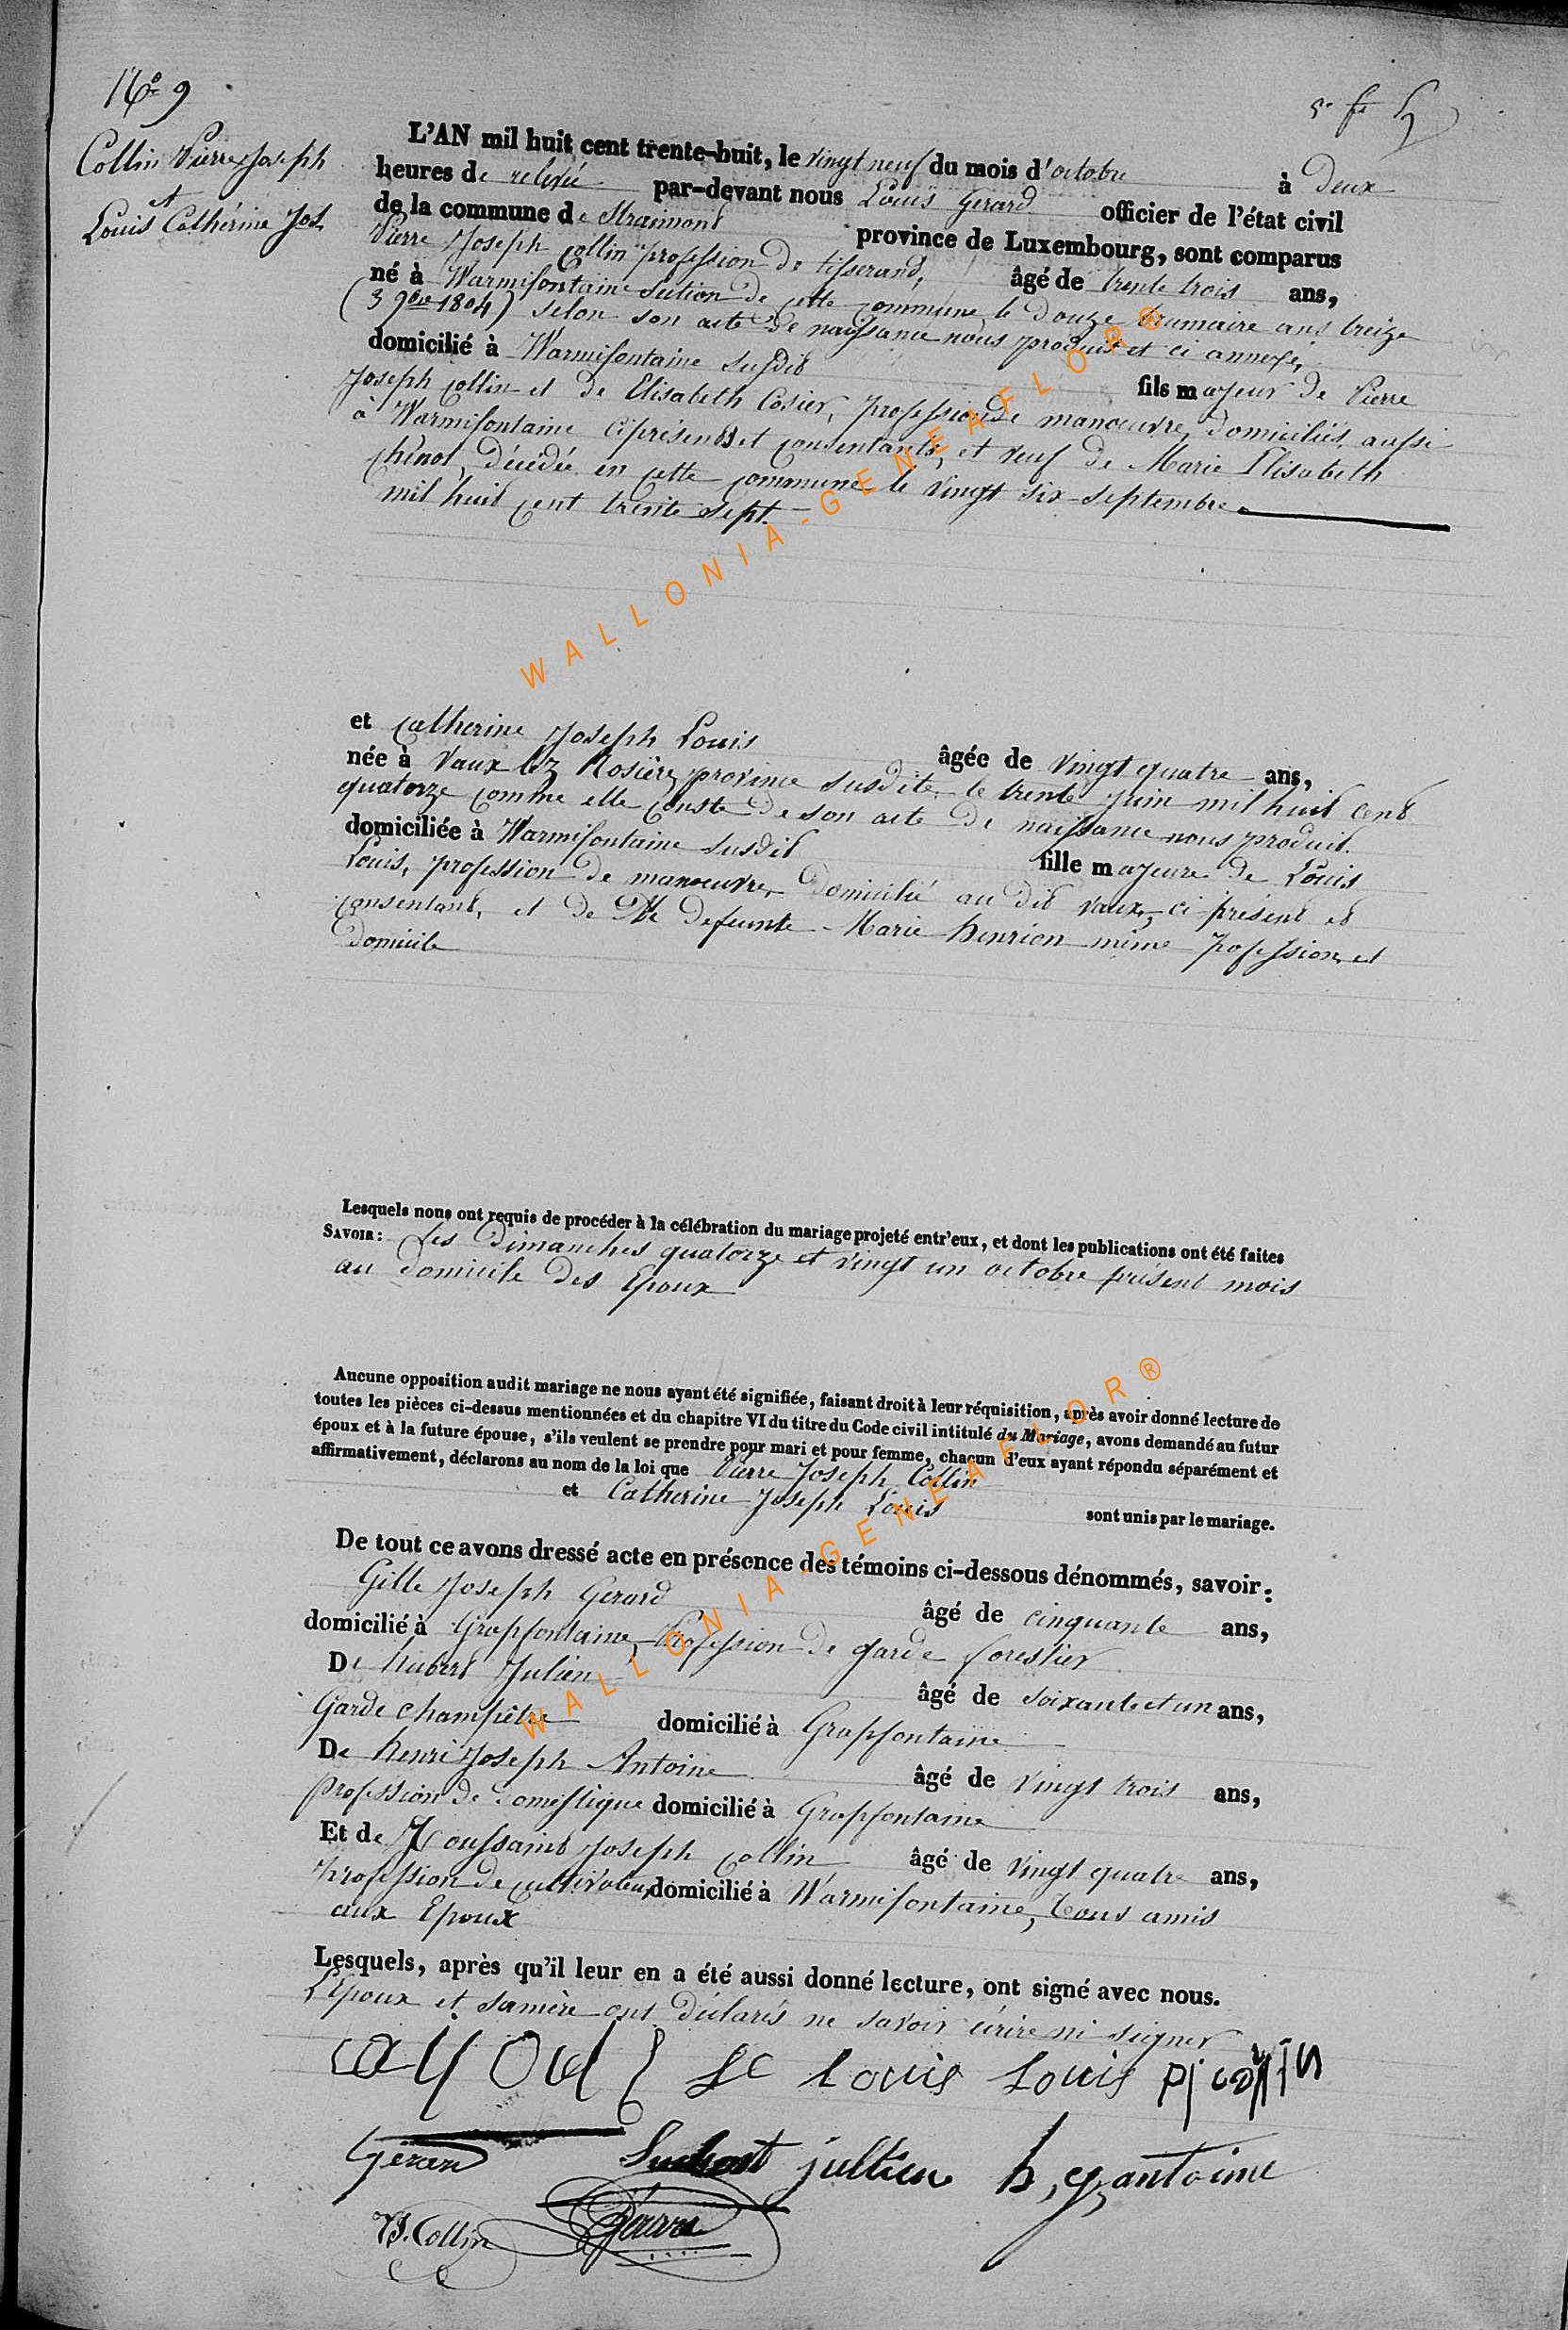 N° 9
Collin Pierre Joseph
et
Louis Catherine Jos.
L'AN mil huit cent trente-huit, le vingt neuf du mois d'octobre à deux
heures de relevée par-devant nous Louis Gerard officier de l'état civil
de la commune de Straimont province de Luxembourg, sont comparus
Pierre Joseph Collin profession de tisserand, âgé de trente trois ans,
né à Warmifontaine section de cette commune le douze brumaire ans treize
(3 9bre 1804) selon son acte de naissance nous produit et ci annexé,
domicilié à Warmifontaine susdit fils majeur de Pierre
Joseph Collin et de Elisabeth Cosier, profession de manoeuvre, domiciliés aussi
à Warmifontaine ci présents et consentants, et veuf de Marie Elisabeth
chinot, décédée en cette commune le vingt six septembre
mil huit cent trente sept.
et Catherine Joseph Louis âgée de vingt quatre ans,
née à Vaux lez Rosière province susdite le trente juin mil huit cent
quatorze comme elle conste de son acte de naissance nous produit.
domiciliée à Warmifontaine susdit fille majeure de Louis
Louis, profession de manoeuvre domicilié au dit vaux, ci présent et
consentant, et de defunte Marie henrion même profession et
domicile
Lesquels nous ont requis de procéder à la célébration du mariage projeté entr'eux, et dont les publications ont été faites
SAVOIR: Les dimanches quatorze et vingt un octobre présent mois
au domicile des Epoux
Aucune opposition audit mariage ne nous ayant été signifiée, faisant droit à leur réquisition, après avoir donné lecture de
toutes les pièces ci-dessus mentionnées et du chapitre VI du titre du Code civil intitulé du Mariage, avons demandé au futur
époux et à la future épouse, s'ils veulent se prendre pour mari et pour femme, chacun d'eux ayant répondu séparément et
affirmativement, déclarons au nom de la loi que Pierre Joseph Collin
et Catherine Joseph Louis sont unis par le mariage.
De tout ce avons dressé acte en présence des témoins ci-dessous dénommés, savoir:
Gille Joseph Gerard âgé de cinquante ans,
domicilié à Grapfontaine, Profession de garde forestier
De hubert Julien âgé de soixante et un ans,
Garde champêtre domicilié à Grapfontaine
De henri Joseph Antoine âgé de vingt trois ans,
profession de domestique domicilié à Grapfontaine
Et de Toussaint Joseph Collin âgé de vingt quatre ans,
Profession de cultivateur domicilié à Warmifontaine, tous amis
aux Epoux
Lesquels, après qu'il leur en a été aussi donné lecture, ont signé avec nous.
L'Epoux et sa mère ont déclarés ne savoir écrire ni signer
louis Louis pj collin
Gérard jullien h, j, antoine
T.J. Collin Gérard
WALLONIA-GENEAFLOR®
WALLONIA-GENEAFLOR®